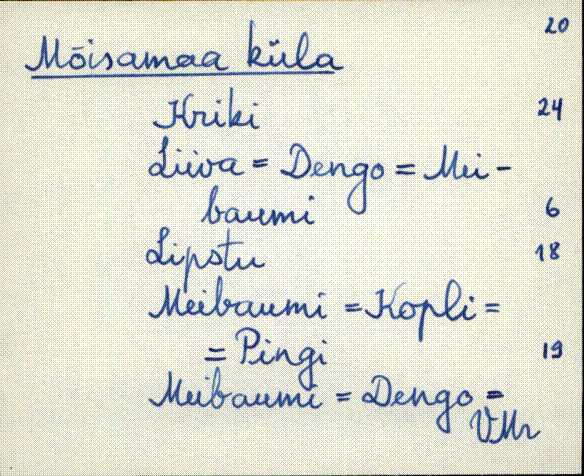 20
Mõisamaa küla
Kriki 24
Liiva = Dengo = Mei-
baumi 6
Lipstu 18
Meibaumi = Kopli =
= Pingi 19
Meibaumi = Dengo =